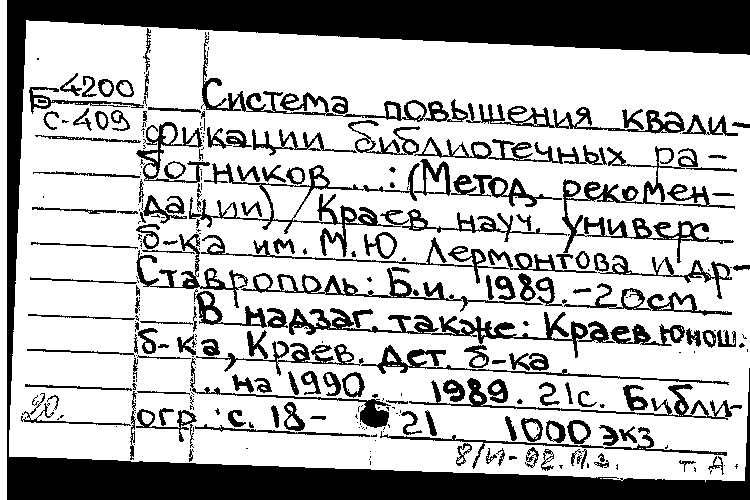 Б-4200
С-409
Система повышения квали-
фикации библиотечных ра-
ботников ...: (Метод. рекомен-
дации) / Краев. науч. универс
б-ка им. М.Ю. Лермонтова и др-
Ставрополь: Б.и., 1989.-20см.
В надзаг. также: Краев.юнош.
б-ка, Краев. дет. б-ка.
.. на 1990. 1989. 21с. Библи-
огр.: с. 18-21. 1000 экз.
20.
т. А.